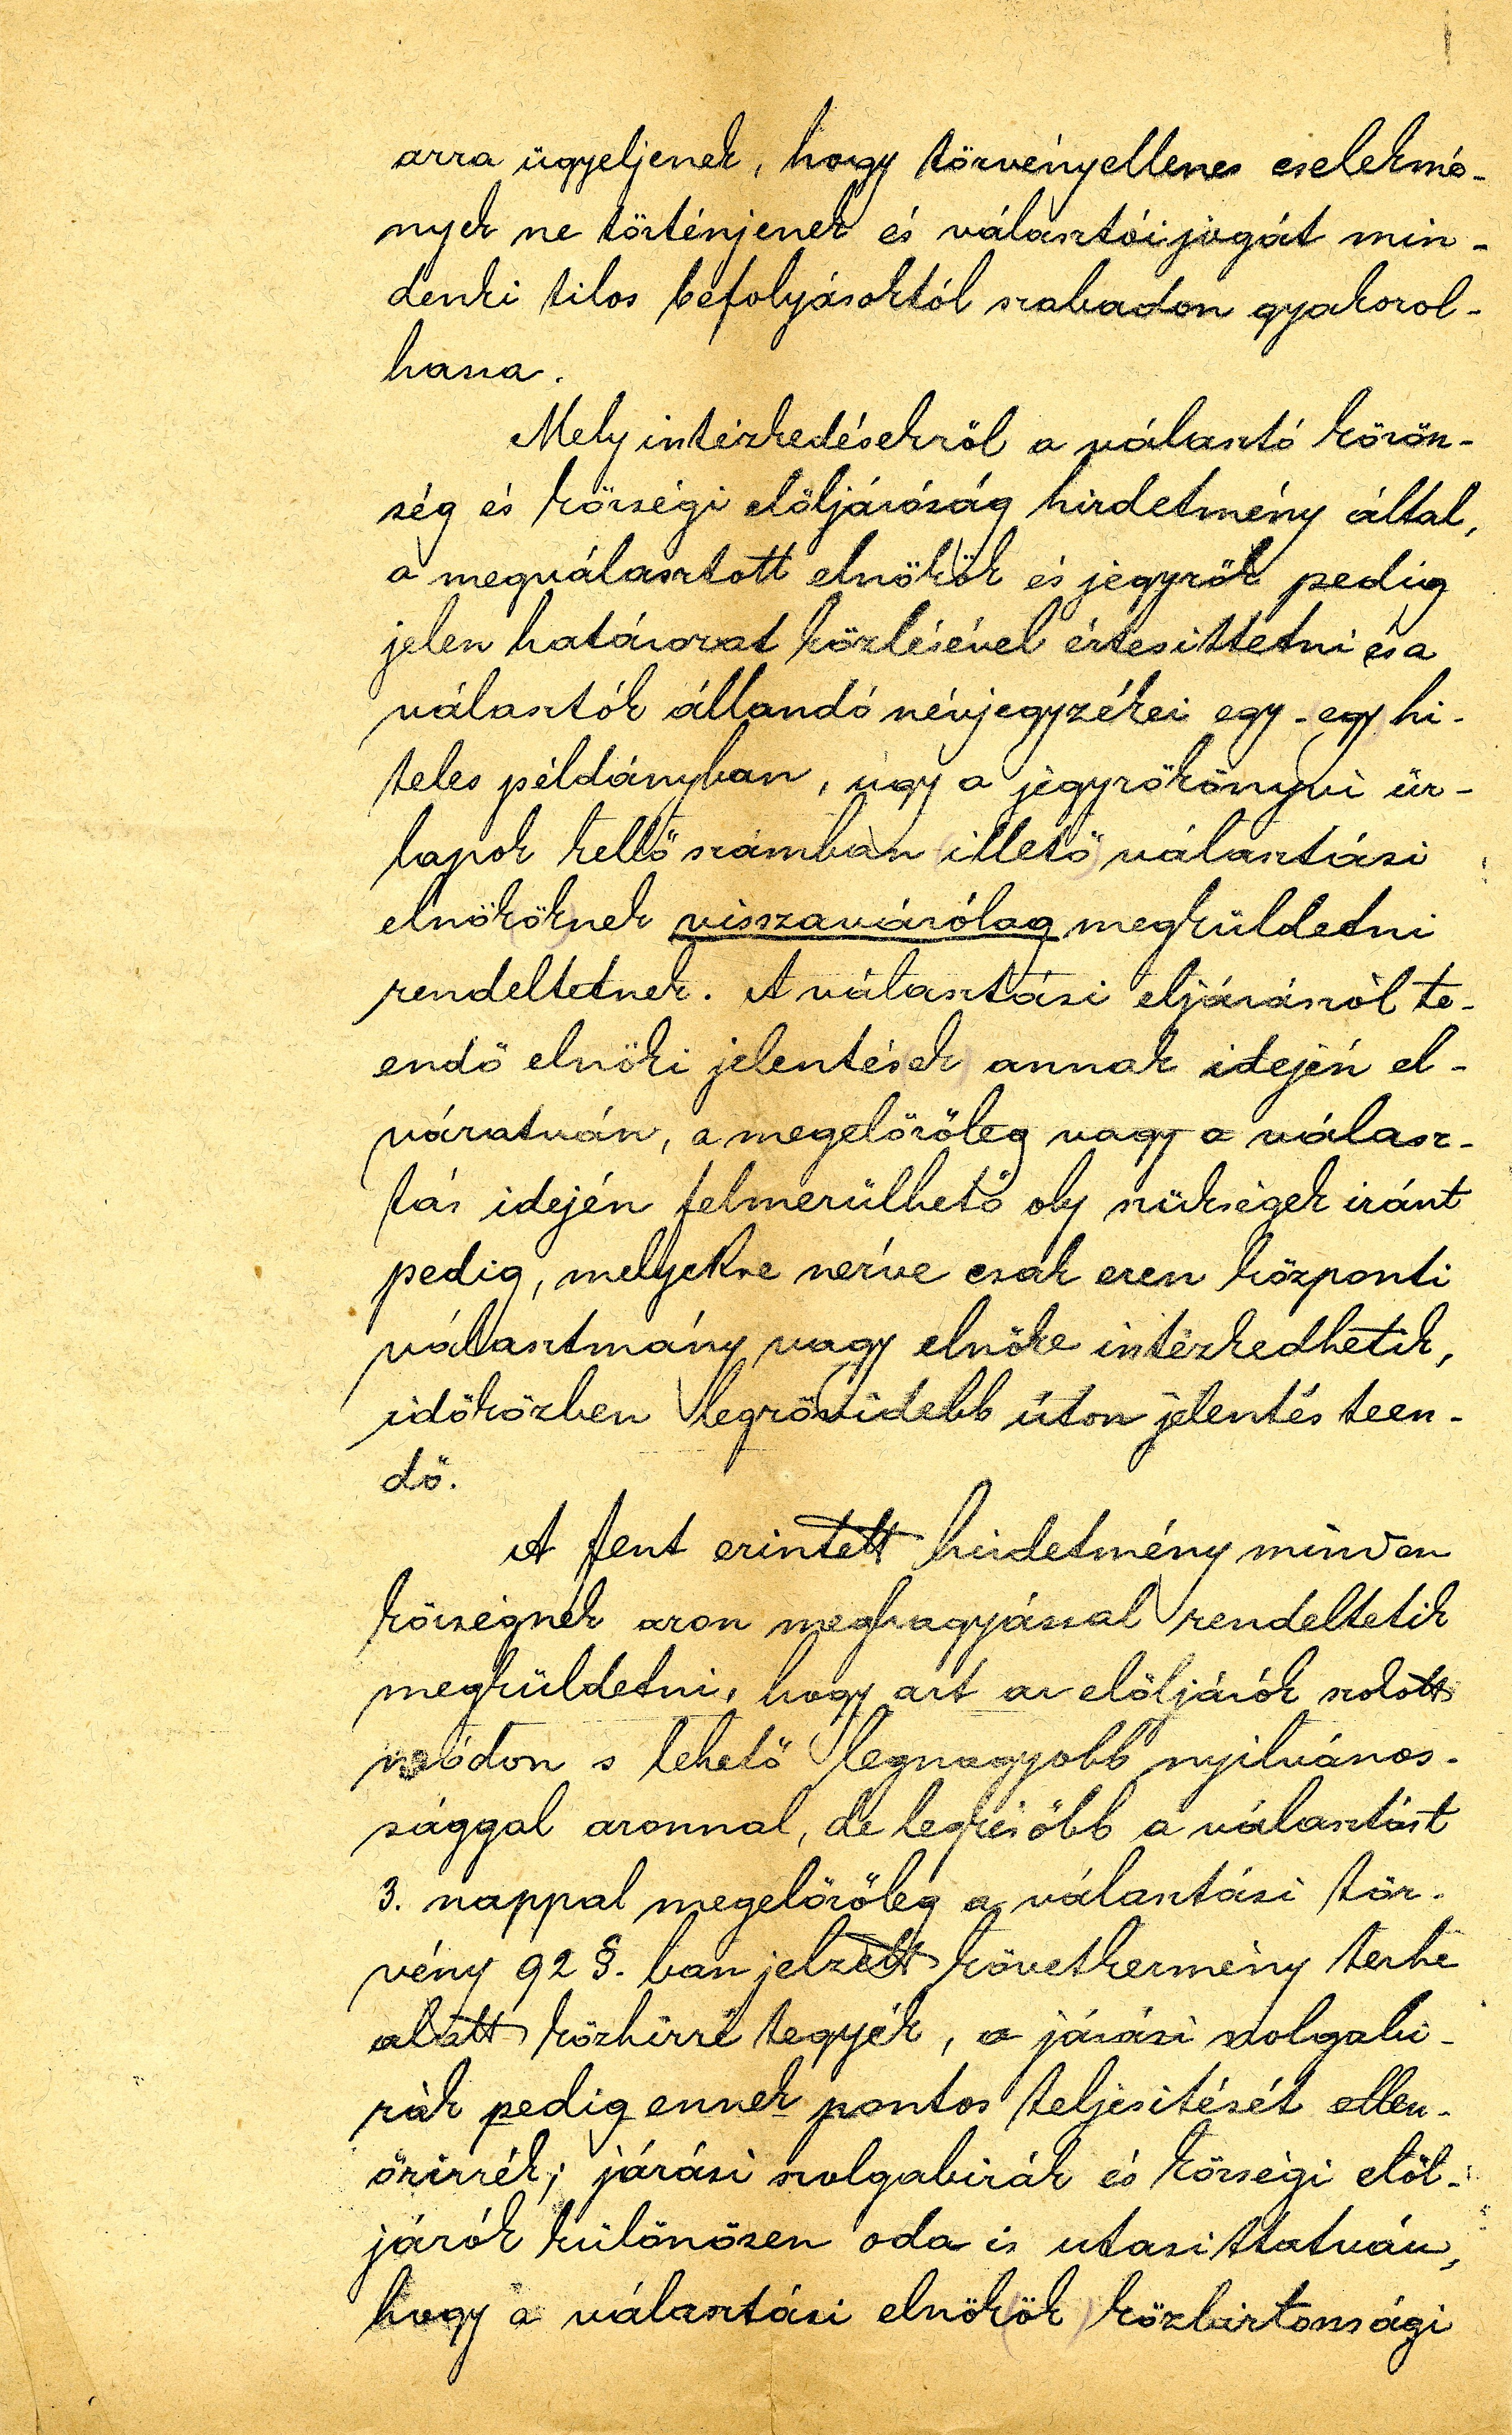 arra ügyeljenek, hogy törvényellenes cselekmé-
nyek ne történjenek és választói jogát min-
denki tilos befolyásoktól szabadon gyakorol-
hassa.
Mely intézkedésekről a választó közön-
ség és községi elöljáróság hirdetmény által,
a megválasztott elnökök és jegyzők pedig
jelen határozat közlésével értesittetni és a
választók állandó névjegyzékei egy-egy hi-
teles példányban, úgy a jegyzőkönyvi űr-
lapok kellő számban illető választási
elnököknek visszavárólag megküldetni
rendeltetnek. A választási eljárásról te-
endő elnöki jelentések annak idején el-
váratván, a megelőzőleg vagy a válasz-
tás idején felmerülhető oly szükségek iránt
pedig, melyekre nézve csak ezen központi
választmány vagy elnöke intézkedhetik,
időközben legrövidebb úton jelentés teen-
dő.
A fent érintett hirdetmény minden
községnek azon meghagyással rendeltetik
megküldetni, hogy azt az elöljárók szokott
módon s lehető legnagyobb nyilvános-
sággal azonnal, de legkésőbb a választást
3. nappal megelőzőleg a választási tör-
vény 92 §. ban jelzett következmény terhe
alatt közhírré tegyék, a járási szolgabi-
rák pedig ennek pontos teljesitését ellen-
őrizzék; járási szolgabirák és községi elöl-
járók különösen oda is utasittatván,
hogy a választási elnökök közbiztonsági